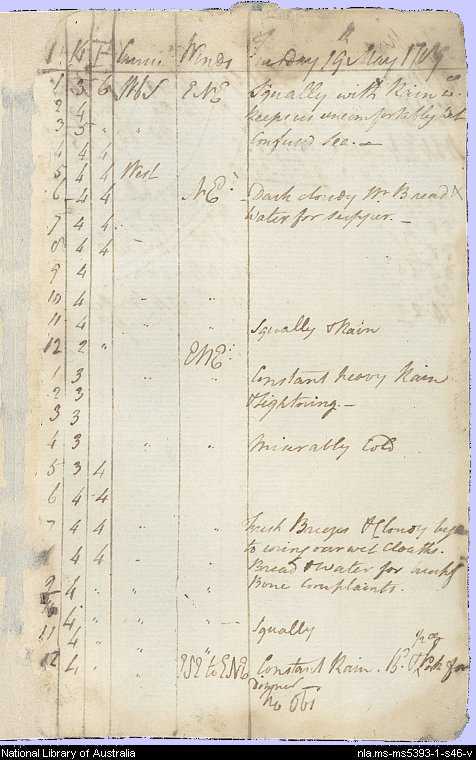 1 K F Course Winds Tuesday 19th May 1789
1 3 6 WbS ENE Squally with Rain wc.
2 4
keeps us uncomfortably wet
3 5 " "
Confused Sea. —
4 4
5 4 4 West
6 4 4 NE: Dark cloudy Wr. Bread X
7 4 4 Water for supper. —
8 4 4
9 4
10 4 " "
11 4 Squally & Rain
12 2 " ENE:
1 3 " " Constant heavy Rain
2 3
3 3 & Lightning. —
4 3 " " Miserably Cold
5 3 4
6 4 4
7 4 4 " " Fresh Breezes & Cloudy
to wring our wet cloaths.
4 4 " "
Bread & Water for
9 4 " "
Bone complaints.
10 4
11 4 " " Squally
4
12 4 " to ENE Constant Rain. Bd. & Pork for
dinner
No Obs
National Library of Australia nla.ms-ms5393-1-s46-v